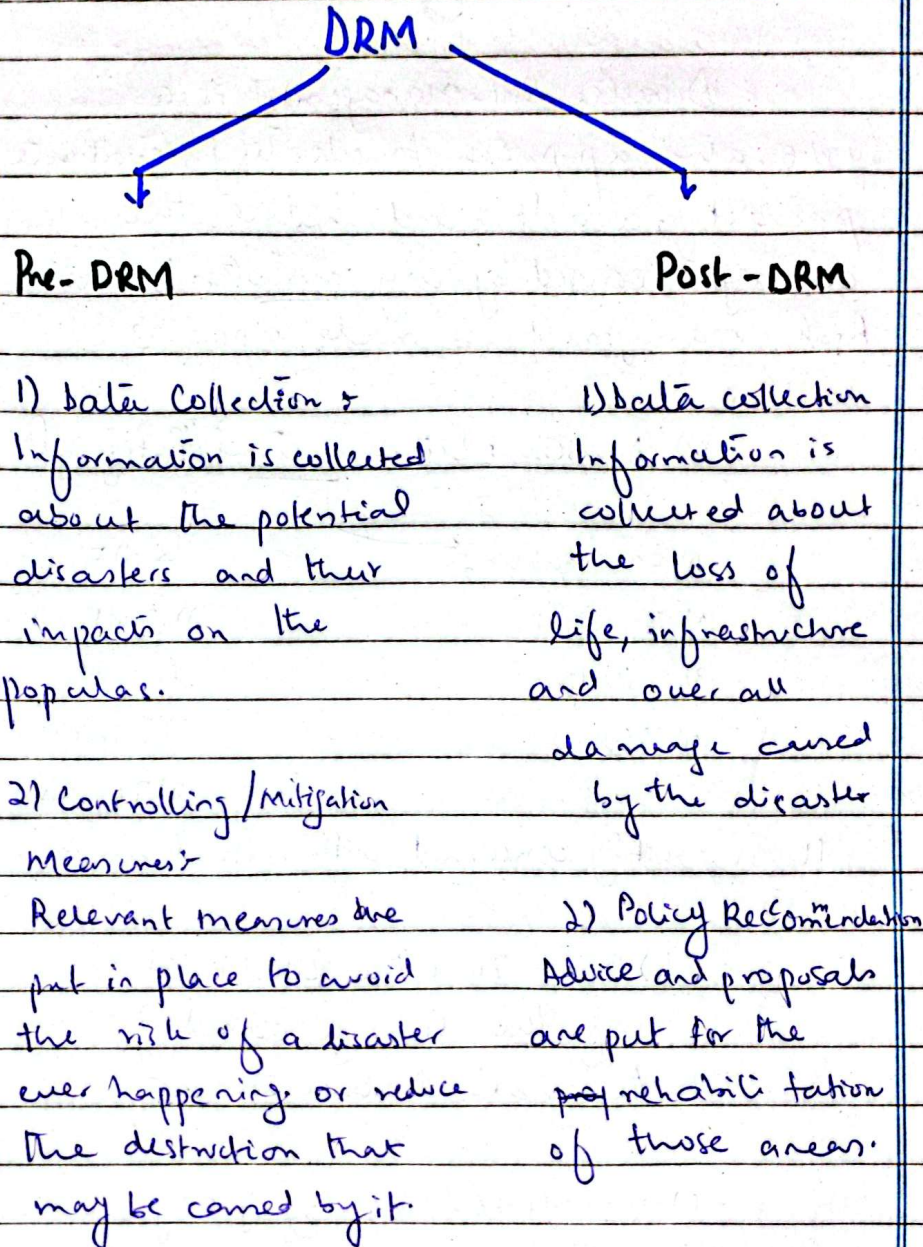 DRM
Pre-DRM
1) Data Collection :
Information is collected
about the potential
disasters and their
impacts on the
populas.
2) Controlling / Mitigation
Measures:-
Relevant measures are
put in place to avoid
the risk of a disaster
ever happening. or reduce
the destruction that
may be caused by it.
Post-DRM
1) Data collection
Information is
collected about
the loss of
life, infrastructure
and over all
damage caused
by the disaster
2) Policy Recommendation
Advice and proposals
are put for the
rehabili tation
of those areas.